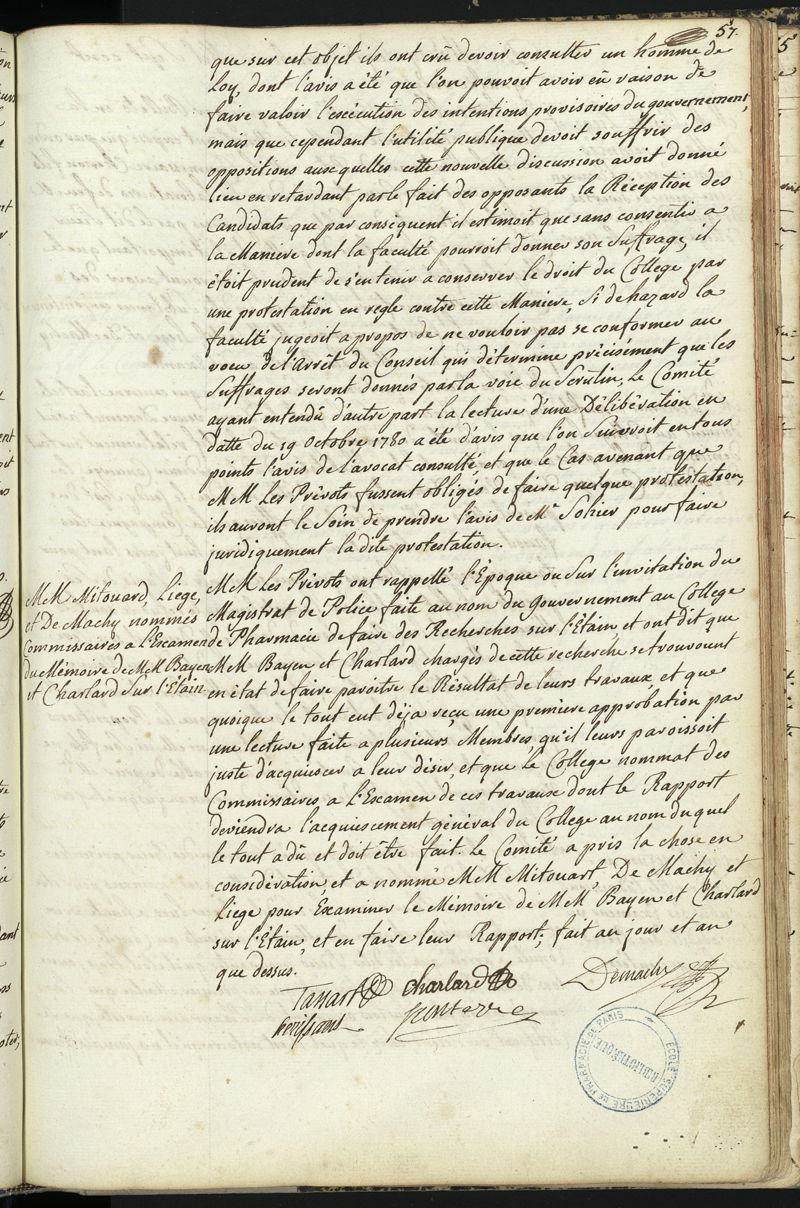 57.
que sur cet objet ils ont crû devoir consulter un homme de
Loy, dont l'avis a été que l'on pouvoit avoir eû raison de
faire valoir l'exécution des intentions provisoires du gouvernement,
mais que cependant l'utilité publique devoit souffrir des
oppositions auxquelles cette nouvelle discussion avoit donné
lieu en retardant par le fait des opposants la Réception des
Candidats que par conséquent il estimoit que sans consentir a
la Maniere dont la faculté pourroit donner son Suffrage, il
étoit prudent de s'en tenir a conserver le droit du College par
une protestation en regle contre cette Maniere, Si de hazard la
faculté jugeoit a propos de ne vouloir pas se conformer au
voeu de l'Arrêt du Conseil qui détermine précisément que les
Suffrages seront donnés par la voie du Scrutin, le Comité
ayant entendû d'autre part la lecture d'une Délibération en
datte du 19 Octobre 1780 a été d'avis que l'on Suivroit en tous
points l'avis de l'avocat consulté, et que le Cas avenant que
MM Les Prévots fussent obligés de faire quelque protestation,
ils auront le Soin de prendre l'avis de Mr Sohier pour faire
juridiquement la dite protestation.
MM Mitouard, Liege,
et De Machy nommés
Commissaires a l'Examen
du Mémoire de MM Bayen
et Charlard Sur l'Etain
MM Les Prévots ont rappellé l'Epoque ou Sur l'invitation du
Magistrat de Police faite au nom du Gouvernement au College
de Pharmacie de faire des Recherches sur l'Etain et ont dit que
MM Bayen et Charlard chargés de cette recherche se trouvount
en état de faire paroitre le Résultat de leurs travaux et que
quoique le tout eut déja reçu une premiere approbation par
une lecture faite a plusieurs Membres, qu'il leurs paroissoit
juste d'acquiescer a leur désir, et que le College nommat des
Commissaires a L'Examen de ces travaux dont le Rapport
deviendra l'acquiescement général du College au nom duquel
le tout a dû et doit être fait. Le Comité a pris la chose en
considération, et a nommé MM Mitouart De Machy et
Liege pour Examiner le Mémoire de MM Bayen et Charlard
sur l'Etain, et en faire leur Rapport; fait au jour et an
que dessus.
Tassart charlard Demachy
ÉCOLE SUPÉRIEURE DE PHARMACIE DE PARIS
BIBLIOTHÈQUE